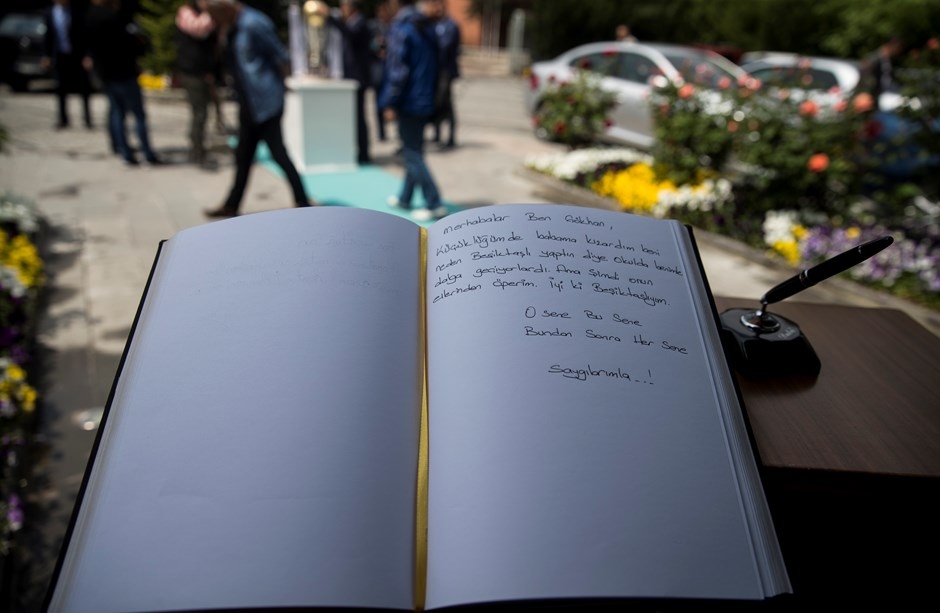 Merhabalar Ben Gökhan,
Küçüklüğümde babama kızardım beni
neden Beşiktaşlı yaptın diye okulda benimle
dalga geçiyorlardı. Ama Şimdi onun
ellerinden öperim. İyi ki Beşiktaşlıyım.
O sene Bu Sene
Bundan Sonra Her Sene
Saygılarımla...!